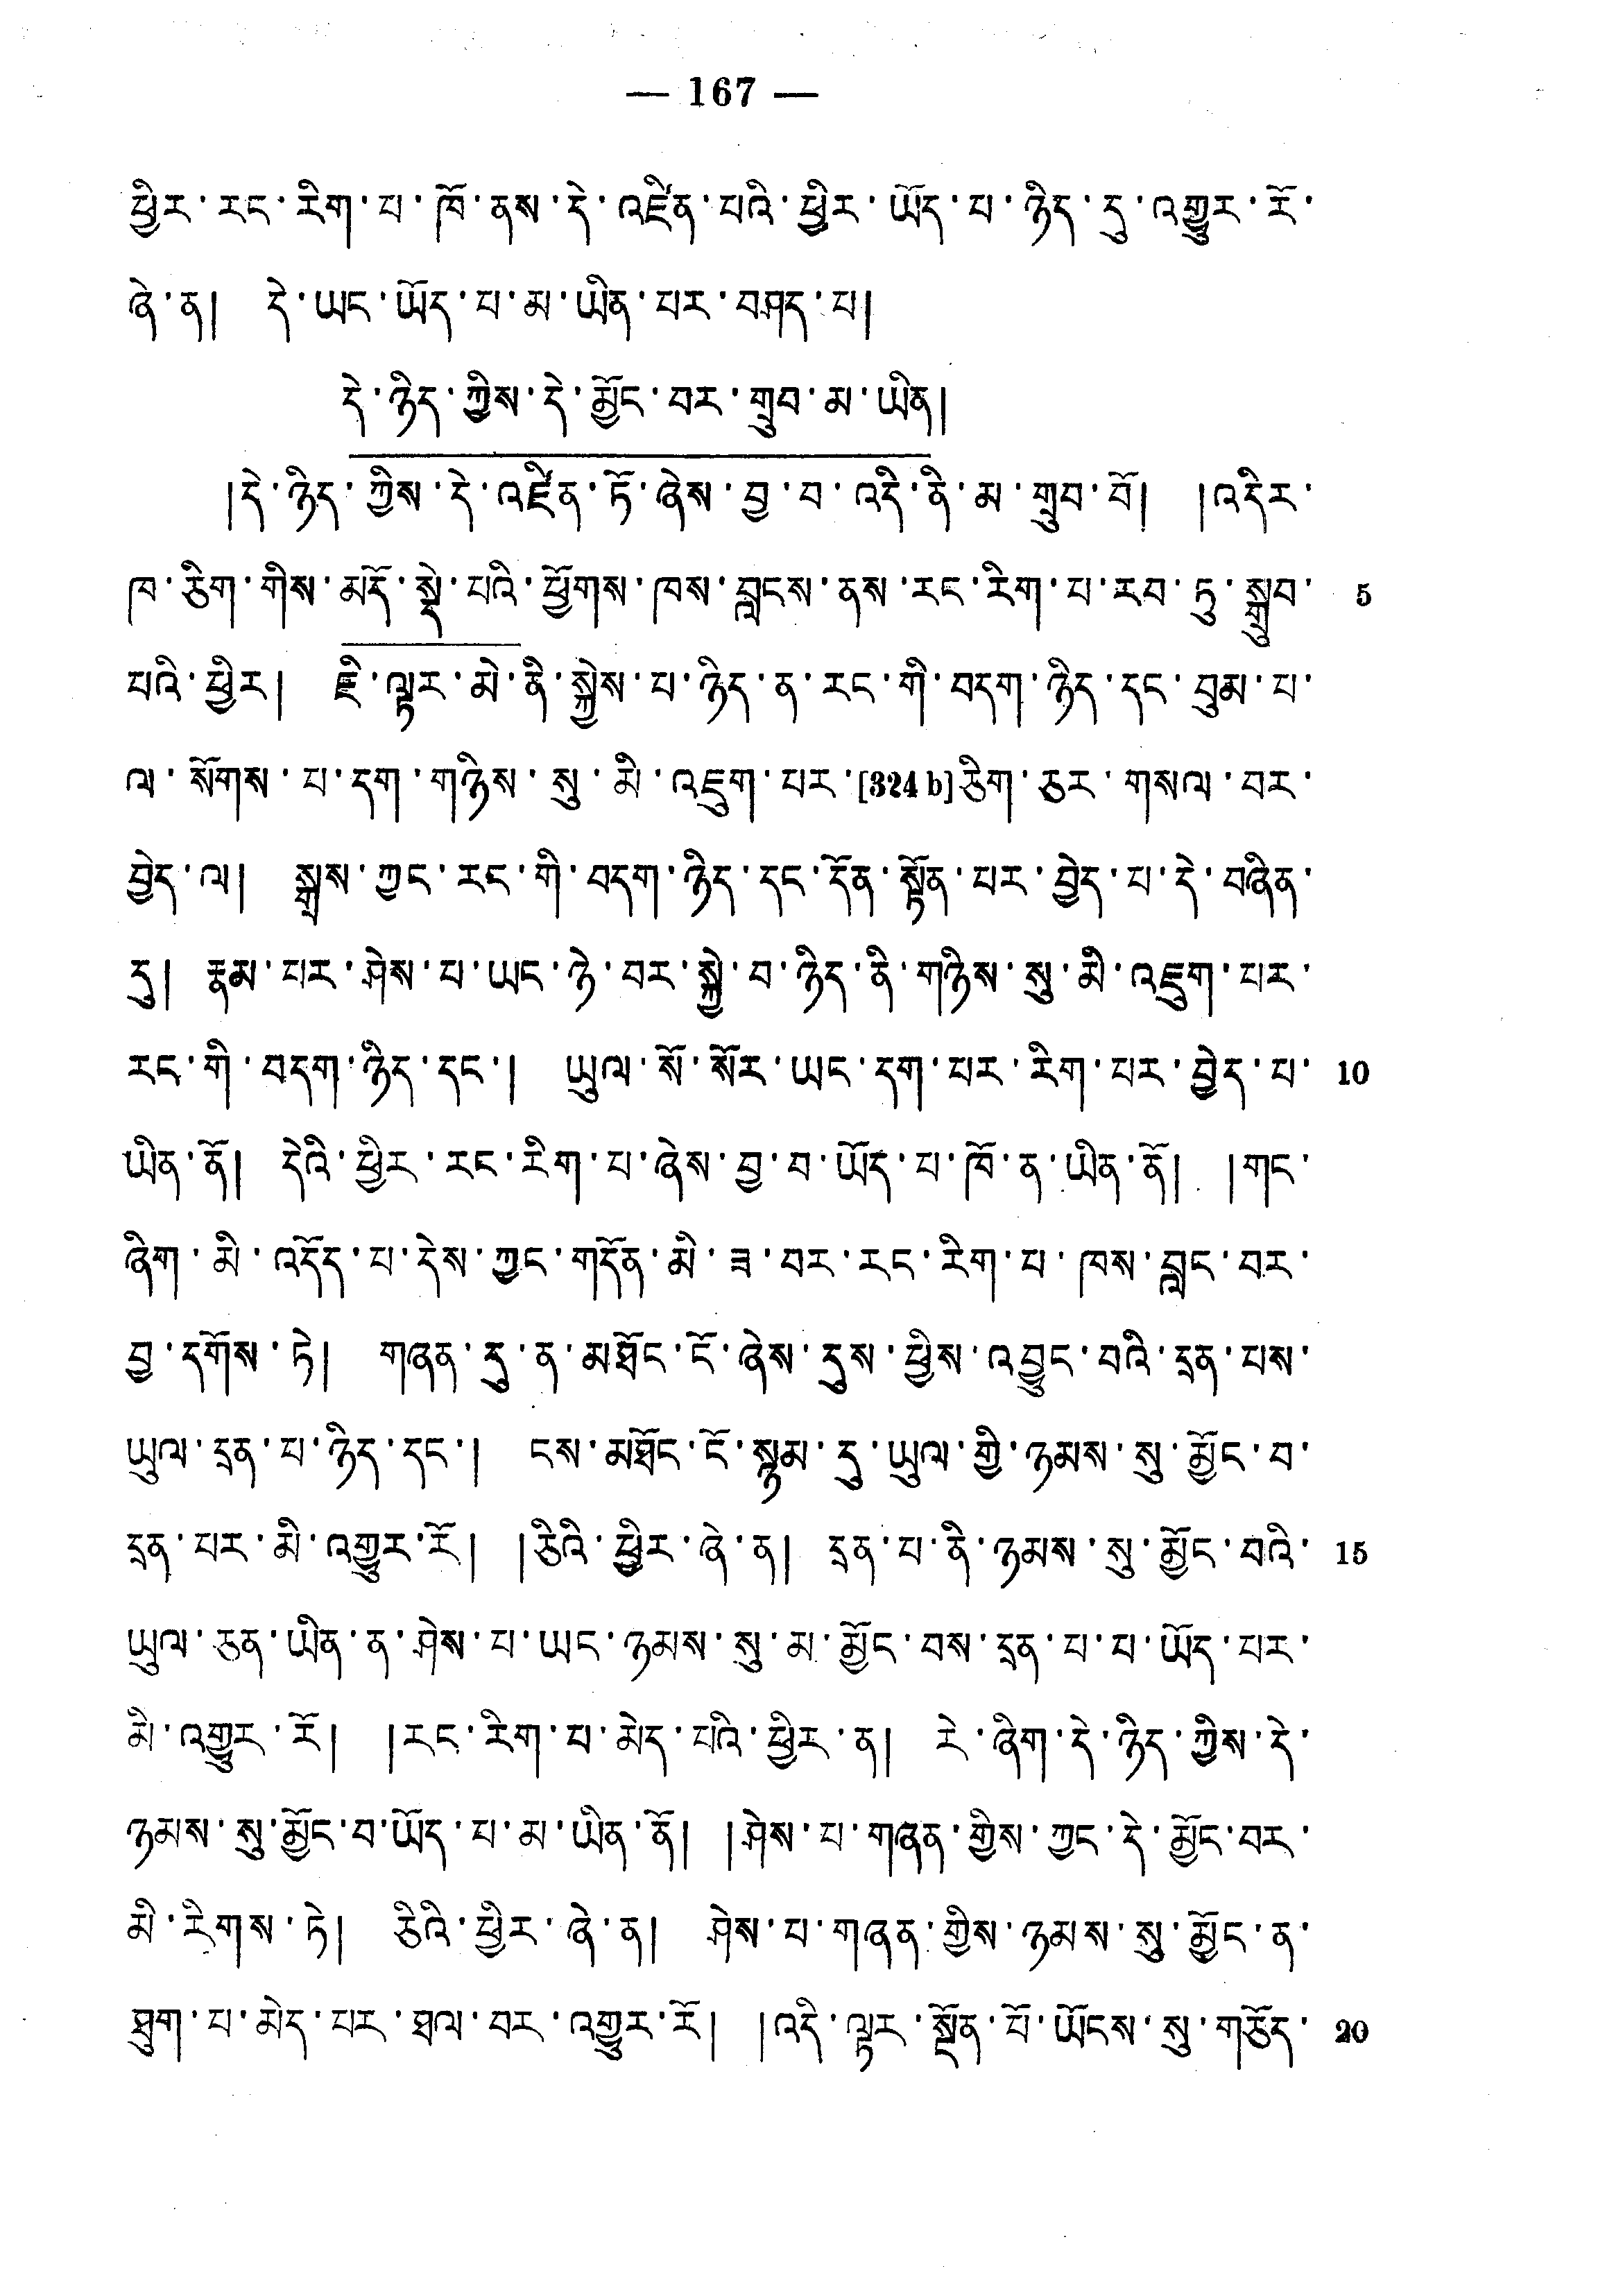 — 167 —
ཕྱིར་རང་རིག་པ་ཁོ་ནས་དེ་འཛིན་པའི་ཕྱིར་ཡོད་པ་ཉིད་དུ་འགྱུར་རོ་
ཞེ་ན། དེ་ཡང་ཡོད་པ་མ་ཡིན་པར་བཤད་པ།
དེ་ཉིད་ཀྱིས་དེ་མྱོང་བར་གྲུབ་མ་ཡིན།
།དེ་ཉིད་ཀྱིས་དེ་འཛིན་ཏོ་ཞེས་བྱ་བ་འདི་ནི་མ་གྲུབ་བོ། །འདིར་
ཁ་ཅིག་གིས་མདོ་སྡེ་པའི་ཕྱོགས་ཁས་བླངས་ནས་རང་རིག་པ་རབ་ཏུ་སྒྲུབ་ 5
པའི་ཕྱིར། ཇི་ལྟར་མེ་ནི་སྐྱེས་པ་ཉིད་ན་རང་གི་བདག་ཉིད་དང་བུམ་པ་
ལ་སོགས་པ་དག་གཉིས་སུ་མི་འཇུག་པར་[324 b]ཅིག་ཅར་གསལ་བར་
བྱེད་ལ། སྒྲས་ཀྱང་རང་གི་བདག་ཉིད་དང་དོན་སྟོན་པར་བྱེད་པ་དེ་བཞིན་
དུ། རྣམ་པར་ཤེས་པ་ཡང་ཉེ་བར་སྐྱེ་བ་ཉིད་ནི་གཉིས་སུ་མི་འཇུག་པར་
རང་གི་བདག་ཉིད་དང་། ཡུལ་སོ་སོར་ཡང་དག་པར་རིག་པར་བྱེད་པ་ 10
ཡིན་ནོ། དེའི་ཕྱིར་རང་རིག་པ་ཞེས་བྱ་བ་ཡོད་པ་ཁོ་ན་ཡིན་ནོ། །གང་
ཞིག་མི་འདོད་པ་དེས་ཀྱང་གདོན་མི་ཟ་བར་རང་རིག་པ་ཁས་བླང་བར་
བྱ་དགོས་ཏེ། གཞན་དུ་ན་མཐོང་ངོ་ཞེས་དུས་ཕྱིས་འབྱུང་བའི་དྲན་པས་
ཡུལ་དྲན་པ་ཉིད་དང་། ངས་མཐོང་ངོ་སྙམ་དུ་ཡུལ་གྱི་ཉམས་སུ་མྱོང་བ་
དྲན་པར་མི་འགྱུར་རོ། །ཅིའི་ཕྱིར་ཞེ་ན། དྲན་པ་ནི་ཉམས་སུ་མྱོང་བའི་ 15
ཡུལ་ཅན་ཡིན་ན་ཤེས་པ་ཡང་ཉམས་སུ་མ་མྱོང་བས་དྲན་པ་པ་ཡོད་པར་
མི་འགྱུར་རོ། །རང་རིག་པ་མེད་པའི་ཕྱིར་ན། རེ་ཞིག་དེ་ཉིད་ཀྱིས་དེ་
ཉམས་སུ་མྱོང་བ་ཡོད་པ་མ་ཡིན་ནོ། །ཤེས་པ་གཞན་གྱིས་ཀྱང་དེ་མྱོང་བར་
མི་རིགས་ཏེ། ཅིའི་ཕྱིར་ཞེ་ན། ཤེས་པ་གཞན་གྱིས་ཉམས་སུ་མྱོང་ན་
ཐུག་པ་མེད་པར་ཐལ་བར་འགྱུར་རོ། །འདི་ལྟར་སྔོན་པོ་ཡོངས་སུ་གཅོད་ 20